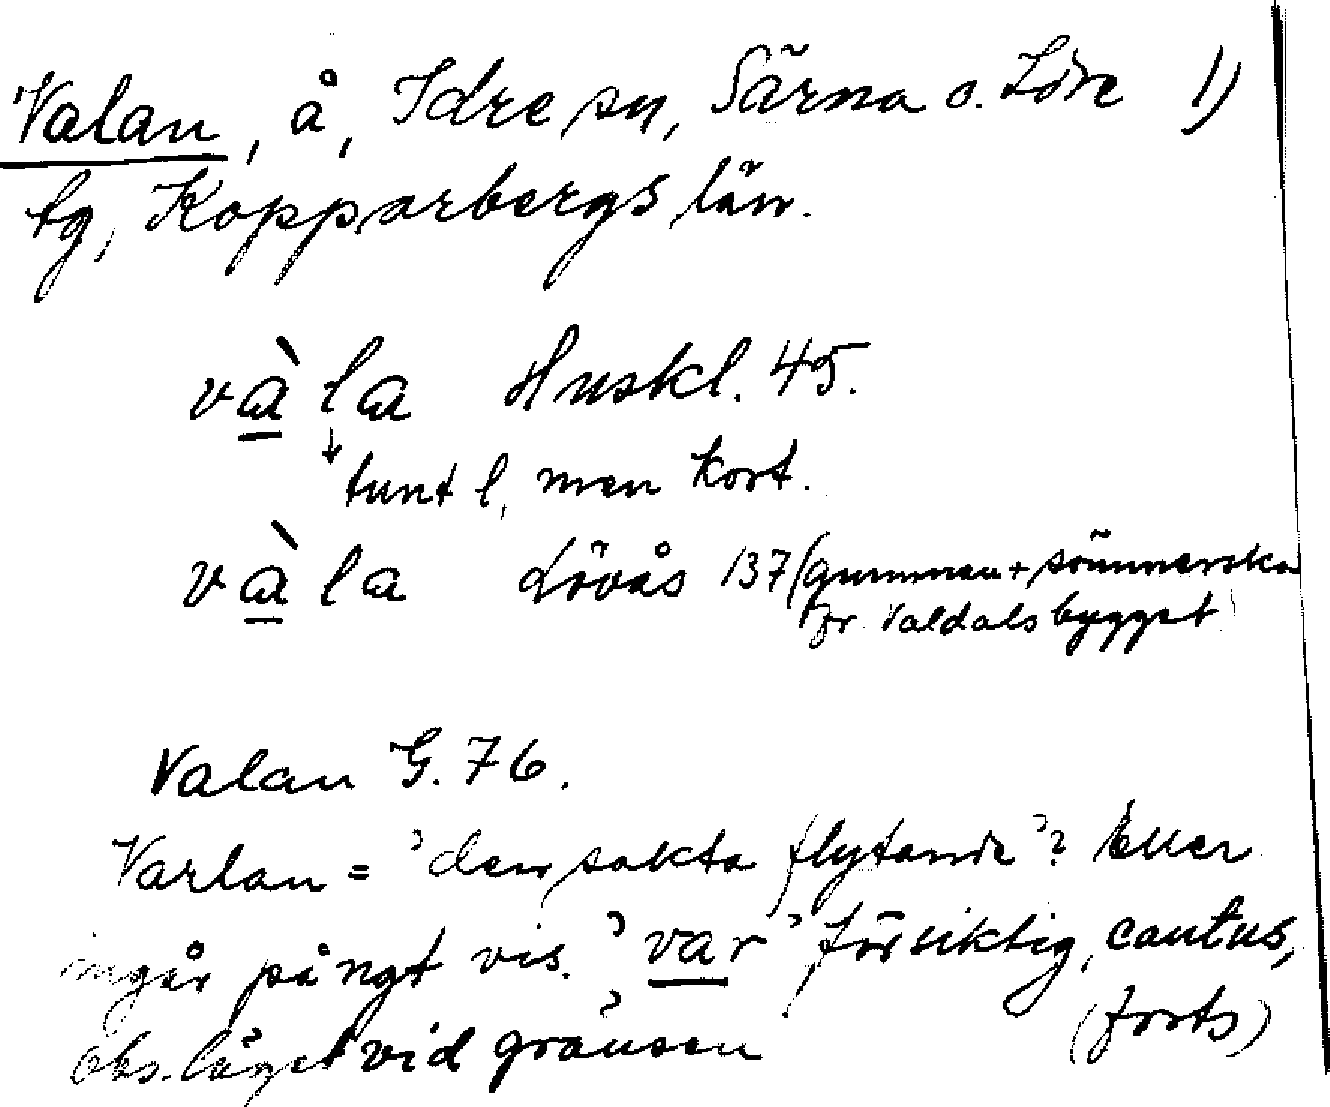 Valan, å, Idre sn, Särna o. Idre 1)
tg, Kopparbergs län.
và la Huskl. 45.
↓
tunt l, men kort.
và la Lövås 137 (gumman + sönnerska
fr. Valdalsbygget)
Valan G. 76.
Varlan = 'den sakta flytande'? Eller
ingår på ngt vis. 'var' försiktig, cautus,
obs. läget vid gränsen (forts)